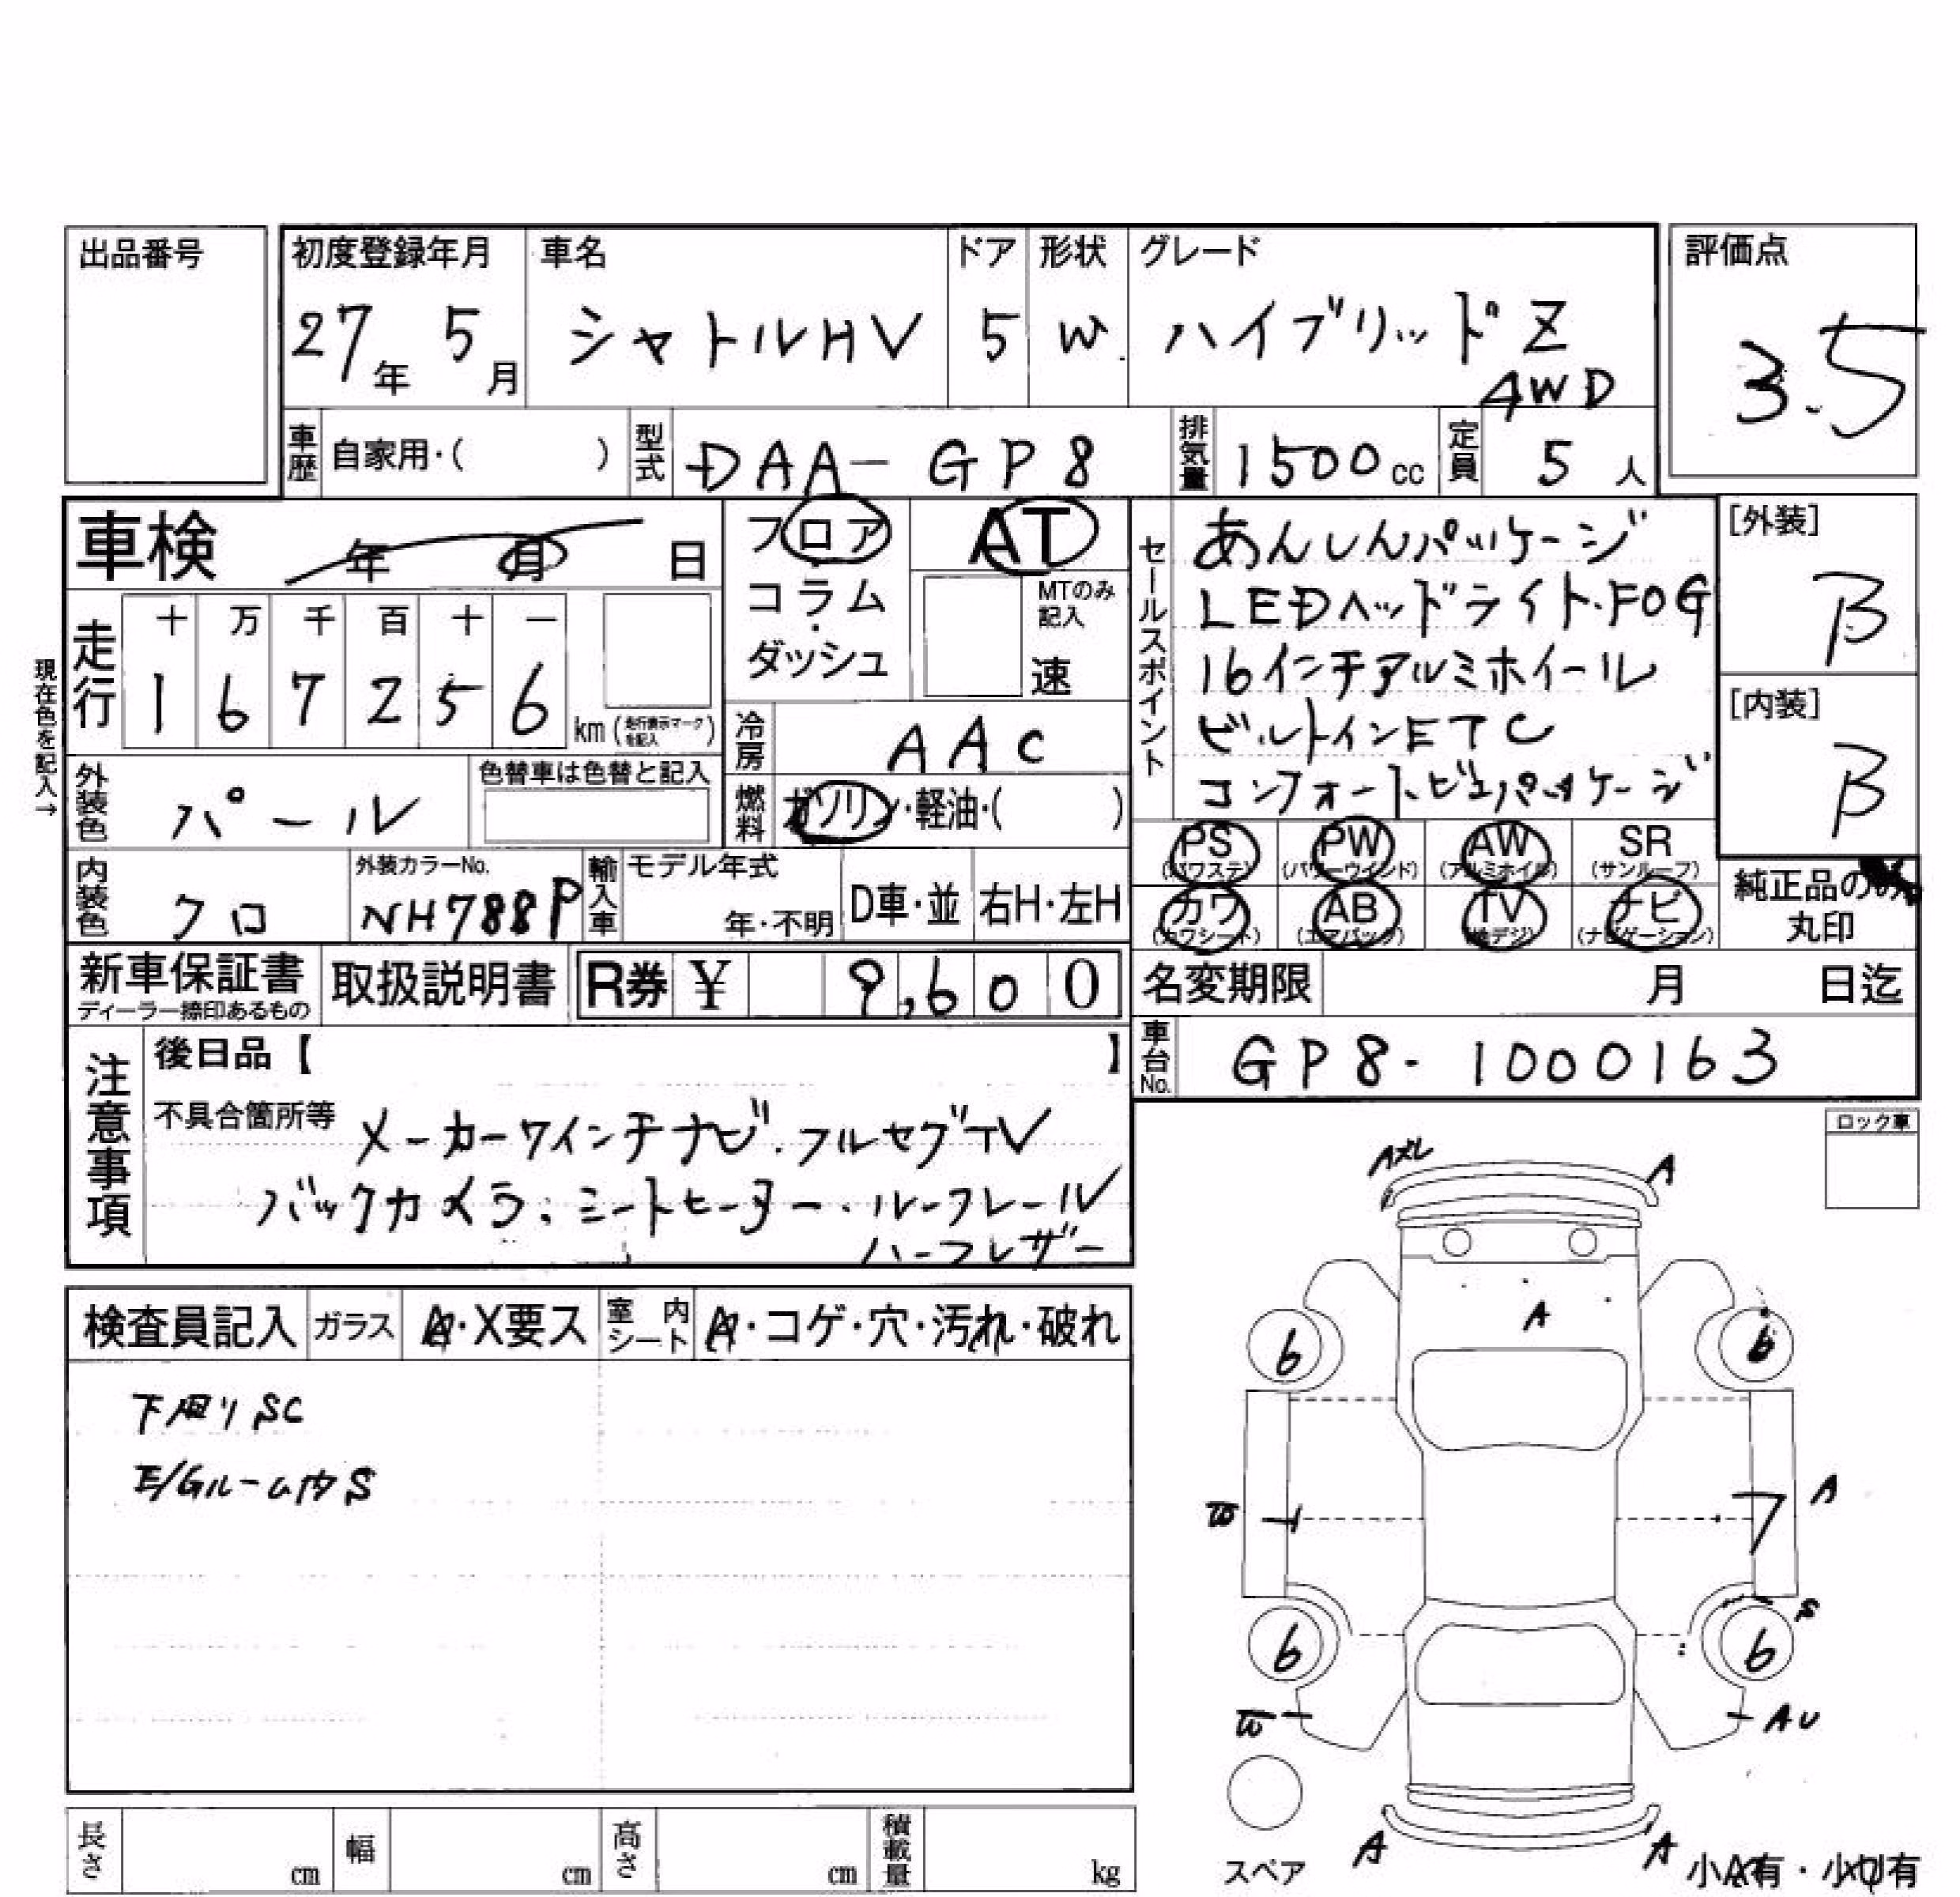 出品番号
初度登録年月 車名 ドア 形状 グレード 評価点
27年 5月 シャトルHV 5 W ハイブリッドZ 3.5
4WD
車歴 自家用・( ) 型式 DAA-GP8 排気量 1500cc 定員 5人
車検 年 月 日
フロア AT
コラム MTのみ記入
ダッシュ 速
現在色を記入→
走行 十 万 千 百 十 一
1 6 7 2 5 6 km (走行表示マークを記入)
冷房 AAC
外装色 パール 色替車は色替と記入
燃料 ガソリン・軽油・( )
内装色 クロ 外装カラーNo. NH788P 輸入車 モデル年式 年・不明 D車・並 右H・左H
セールスポイント
あんしんパッケージ
LEDヘッドライト・FOG
16インチアルミホイール
ビルトインETC
コンフォートビューパッケージ
[外装]
B
[内装]
B
PS (パワステ) PW (パワーウインド) AW (アルミホイル) SR (サンルーフ)
カワ (カワシート) AB (エアバック) TV (地デジ) ナビ (ナビゲーション)
純正品のみ
丸印
新車保証書 取扱説明書 R券 ¥ 9,600 名変期限 月 日迄
ディーラー捺印あるもの
車台No. GP8-1000163
注意事項
後日品【 】
不具合箇所等 メーカー7インチナビ・フルセグTV
バックカメラ・シートヒーター・ルーフレール
ハーフレザー
ロック車
検査員記入 ガラス A・X要ス 室内シート A・コゲ・穴・汚れ・破れ
下廻りSC
E/Gルーム内S
AXL A
A
6 6
W A
S
6 6
W AU
A A
スペア 小A有・小U有
長さ cm 幅 cm 高さ cm 積載量 kg